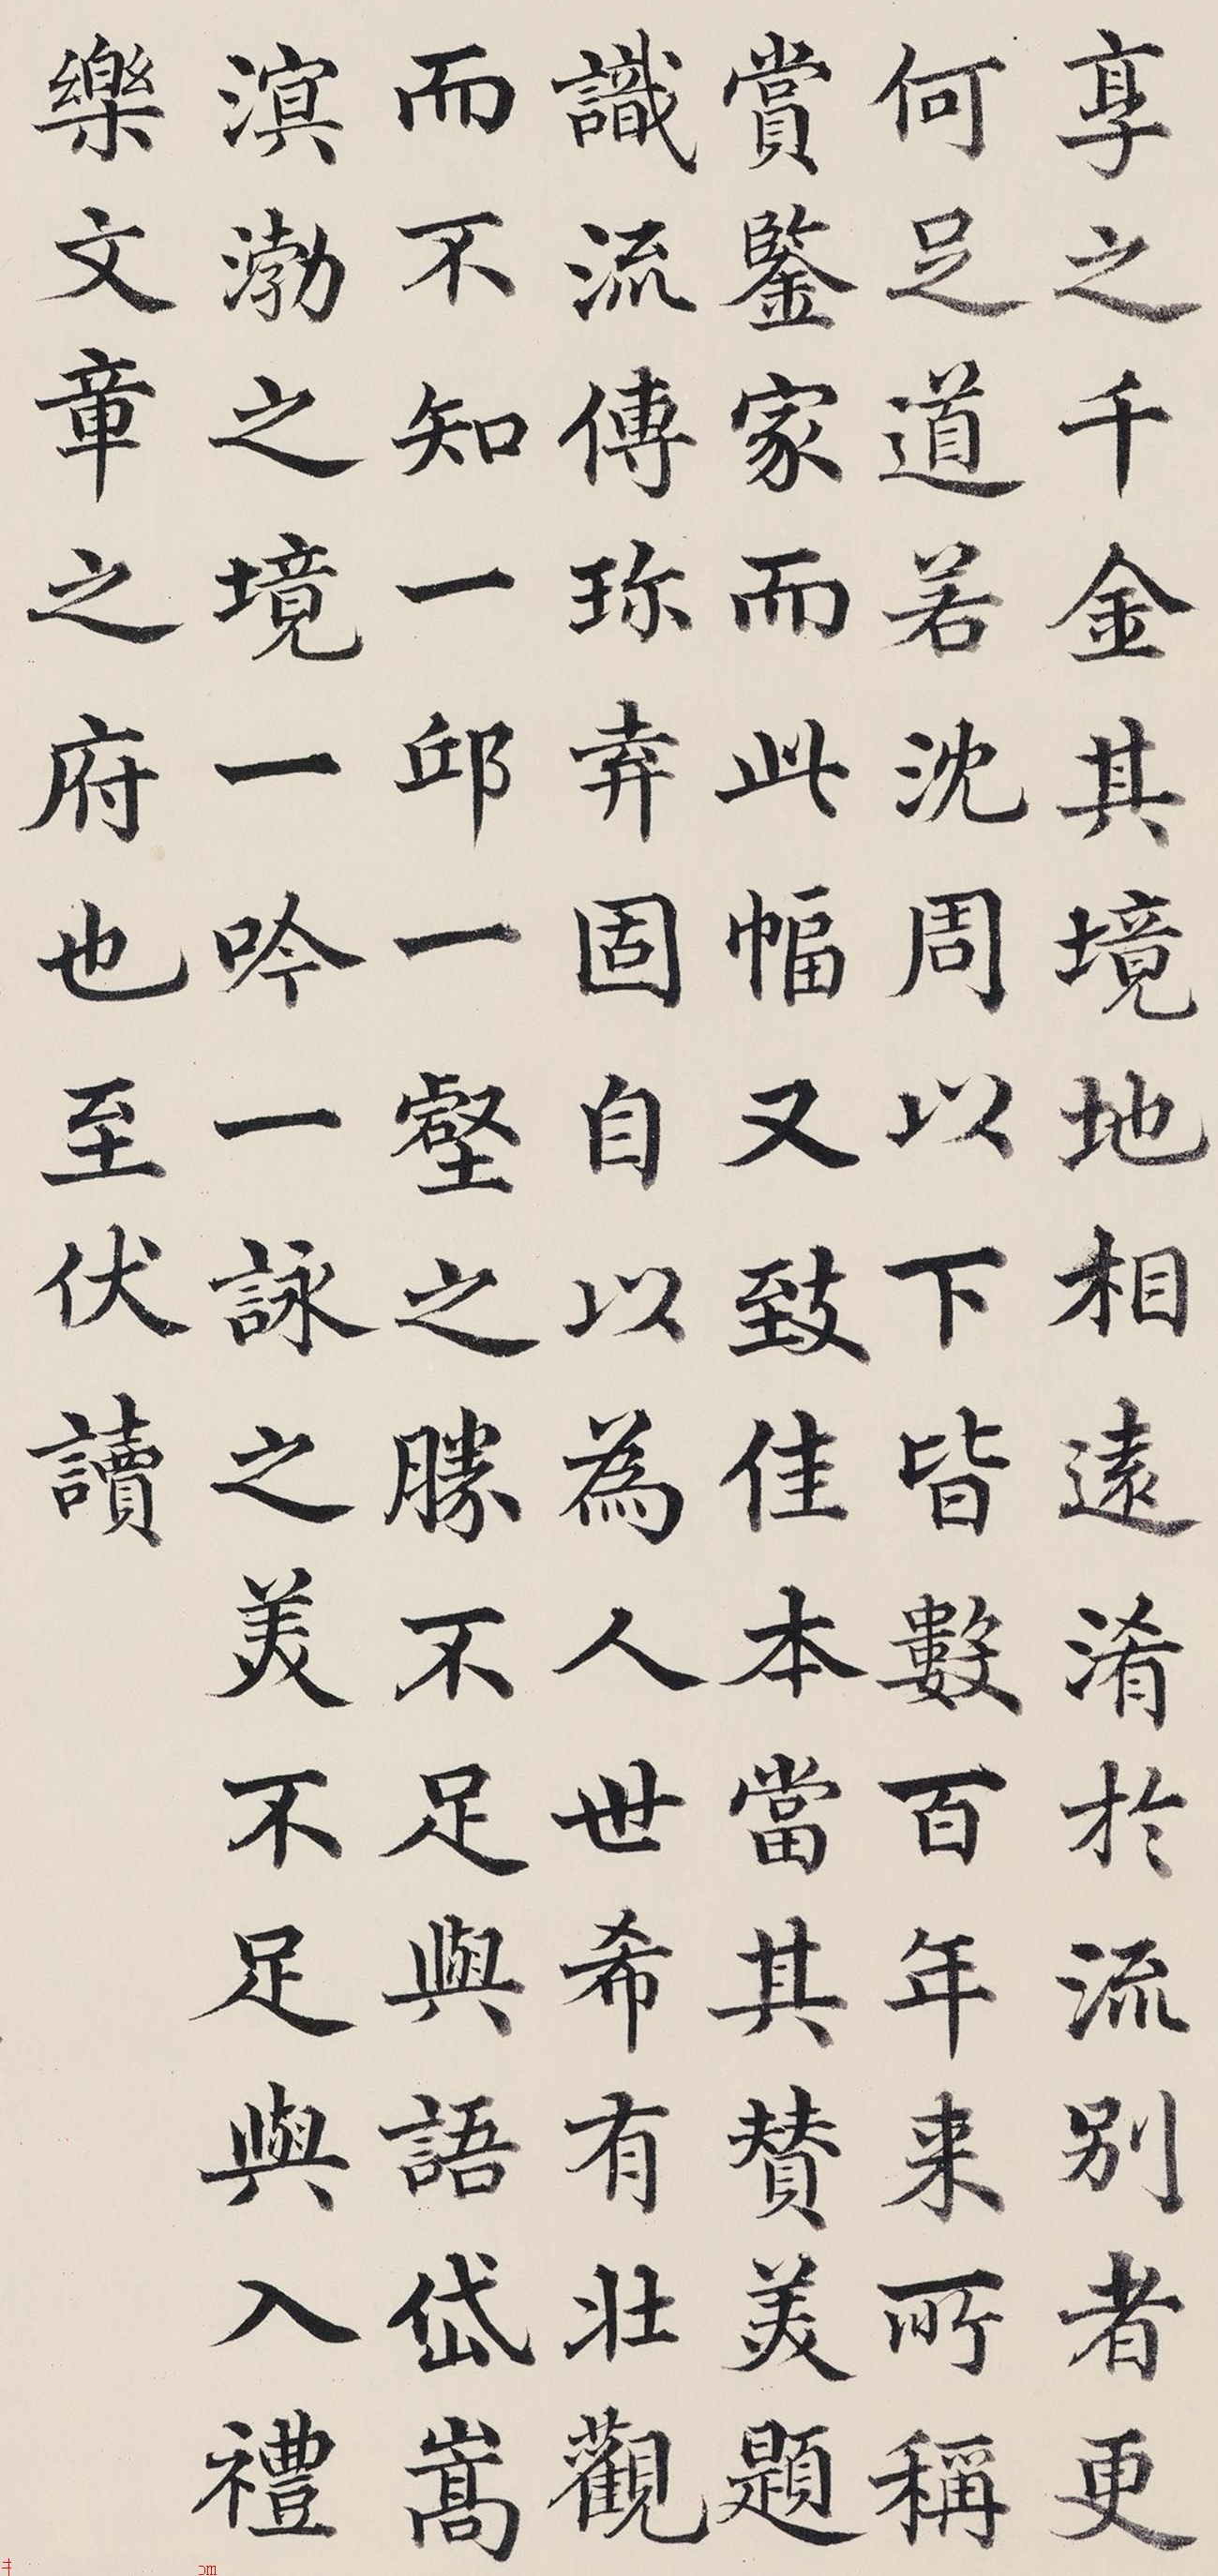 享之千金其境地相遠淆於流别者更
何足道若沈周以下皆數百年来所稱
賞鑒家而此幅又致佳本當其賛美題
識流傳珎弆固自以為人世希有壯觀
而不知一邱一壑之勝不足與語岱嵩
溟渤之境一吟一詠之美不足與入禮
樂文章之府也至伏讀